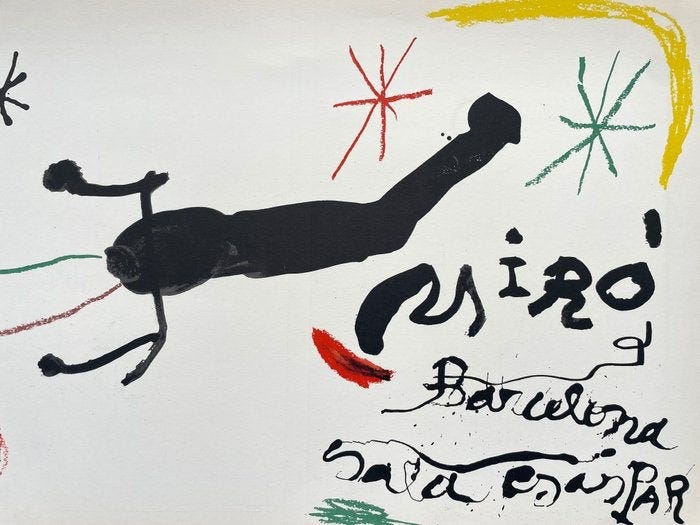 MIRÓ
a
Barcelona
Sala GasPAR